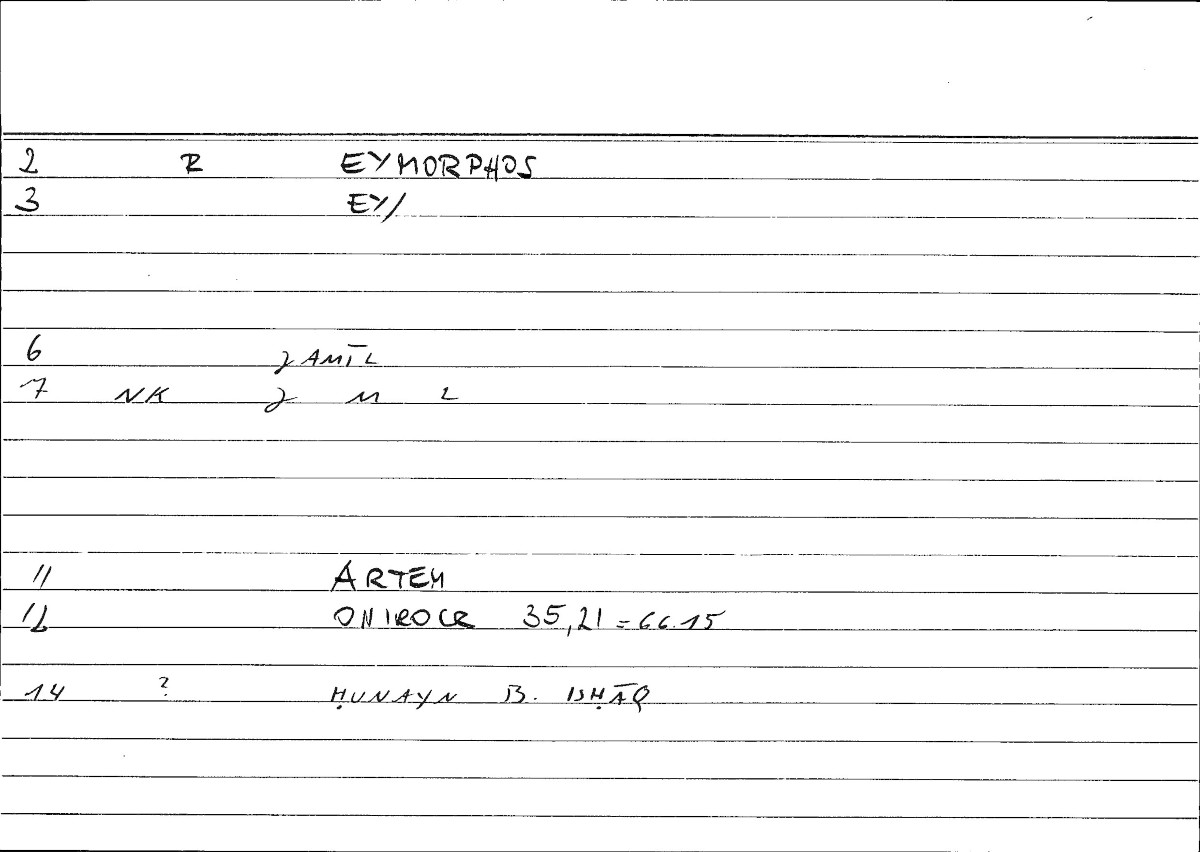 2 R EYMORPHOS
3 EY/
6 ǧAMĪL
7 NK ǧ M L
11 ARTEM
12 ONIROCR 35,21 = 66.15
14 ? ḤUNAYN B. ISḤĀQ